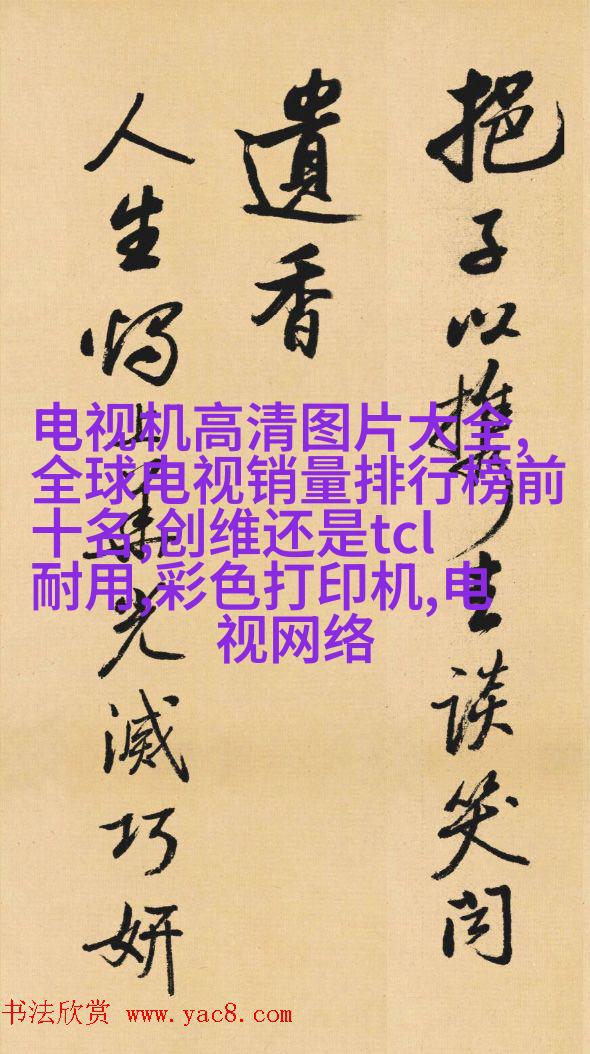 挹子以生談笑聞
遺香
人生燭上華光滅巧妍
电视机高清图片大全,
全球电视销量排行榜前
十名,创维还是tcl
耐用,彩色打印机,电
视网络
书法欣赏 www.yac8.com